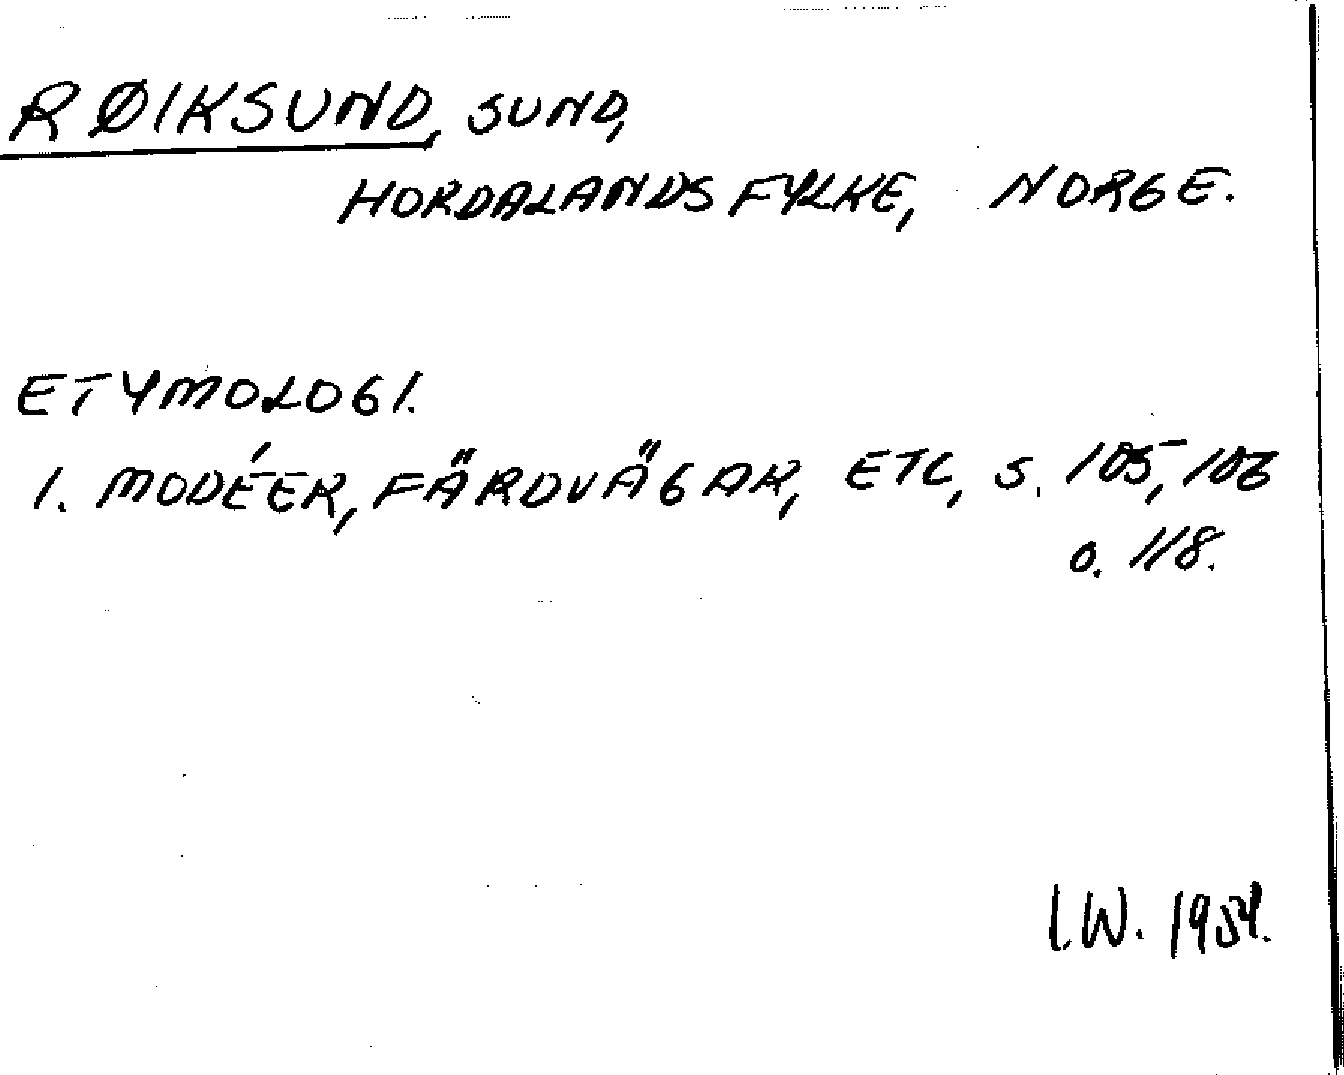 RØIKSUND, SUND,
HORDALANDS FYLKE, NORGE.
ETYMOLOGI.
1. MODÉER, FÄRDVÄGAR, ETC, S. 105, 106
o. 118.
I.W. 1954.